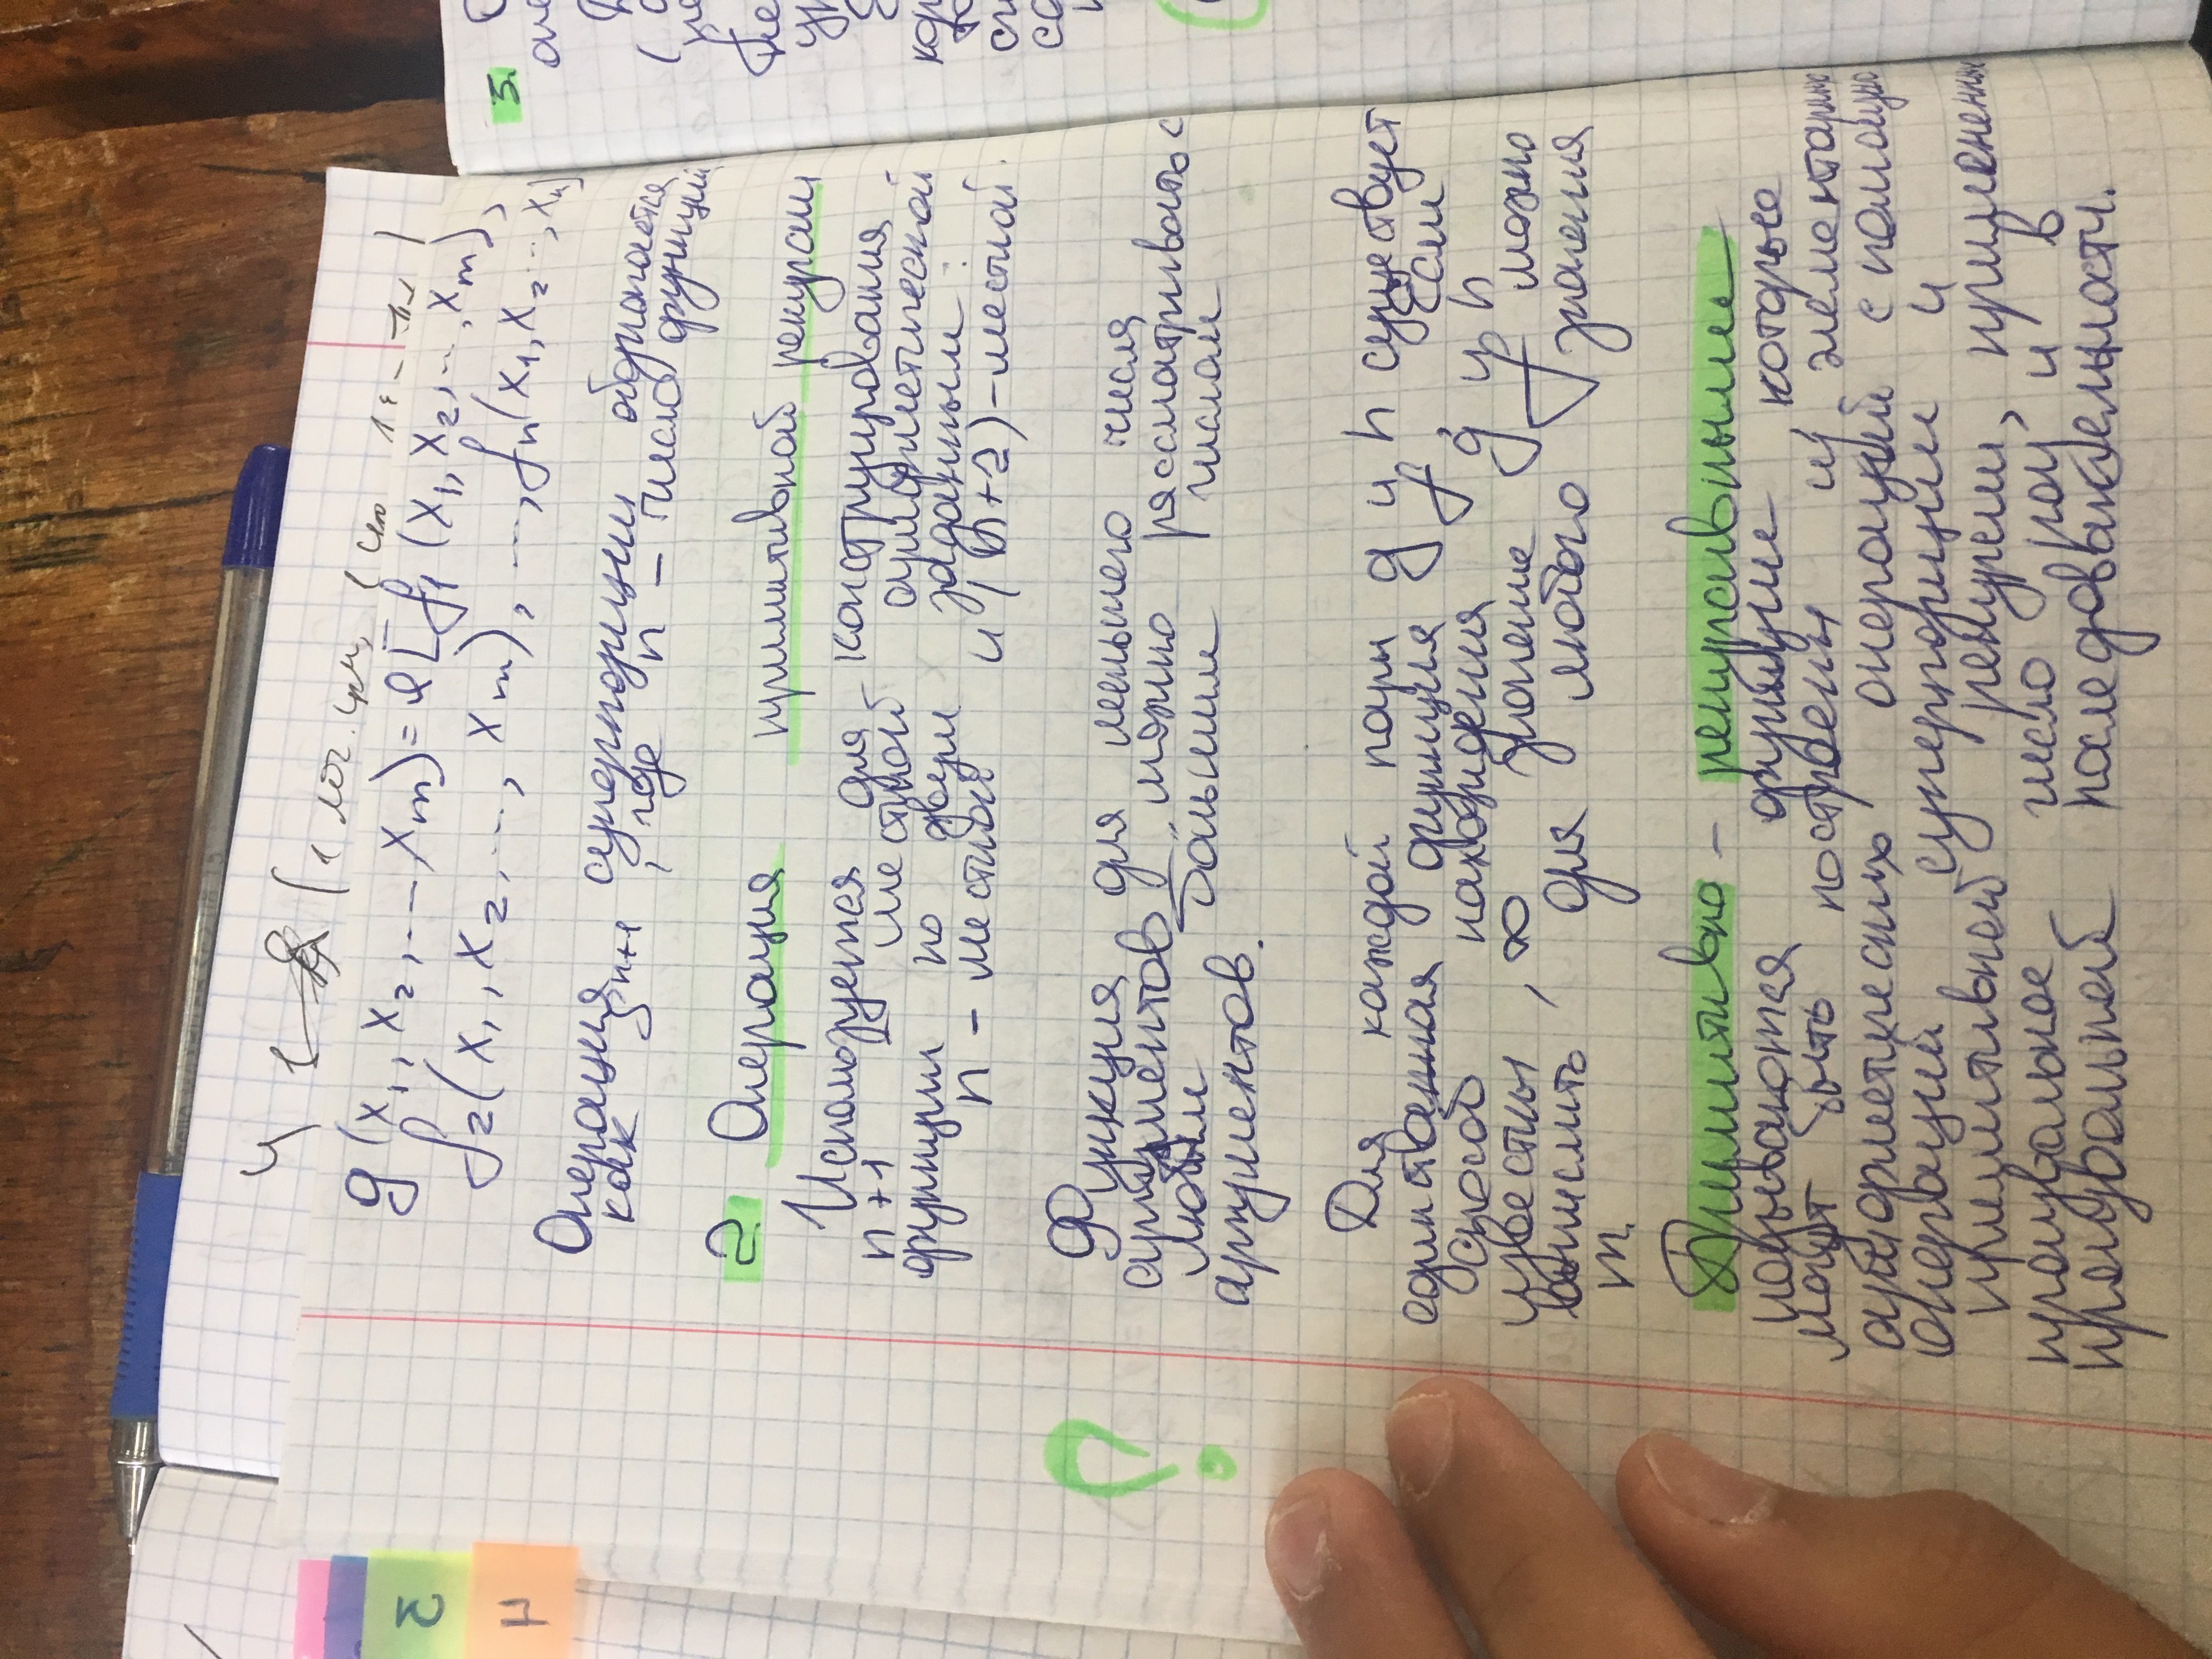 g(x₁, x₂, ... xₘ) = l[f₁(x₁, x₂, ..., xₘ),
f₂(x₁, x₂, ..., xₘ), ..., fₙ(x₁, x₂ ..., xₙ)
Операция суперпозиции обозначается
как Sⁿ⁺¹, где n - число функций
2. Операция примитивной рекурсии
Используется для конструирования
n+1 - местной арифметической
функции по двум заданным:
n - местной и (n+2)-местной.
?
Функция для меньшего числа
аргументов можно рассматривать с
любым большим числом
аргументов.
Для каждой пары g и h существует
единственная функция f. Если
способ нахождения g и h
известны, значение f можно
вычислить для любого значения
m.
Примитивно - рекурсивными
называются функции, которые
могут быть построены из элементарных
арифметических операций с помощью
операций суперпозиции и
примитивной рекурсии, примененных
произвольное число раз и в
произвольной последовательности.
3
4
5.